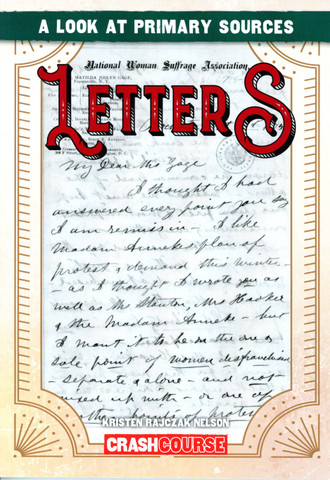 A LOOK AT PRIMARY SOURCES
National Woman Suffrage Association
MATILDA JOSLYN GAGE,
LETTERS
My Dear Mrs Gage
I thought I had
answered every point you say
I am remiss in - I like
Madam Annekes plan of
protest & demand this winter
- as I thought I wrote you as
well as Mrs Stanton, Mrs Hooker
& the Madam Anneke - but
I want it to be on the one &
sole point of women disfranchised
- separate & alone - and not
mixed up with - or one of
points of protest
KRISTEN RAJCZAK NELSON
CRASHCOURSE